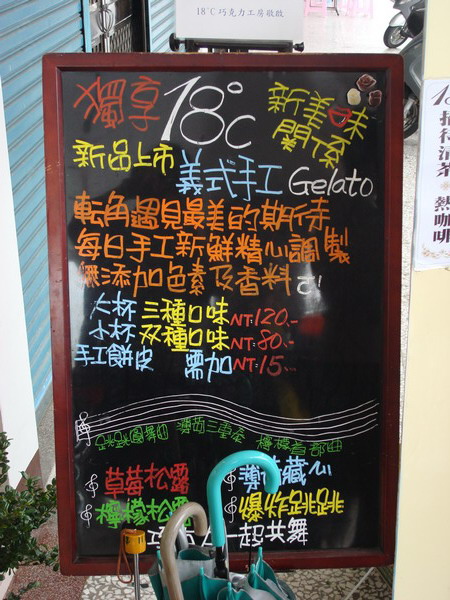 18°C 巧克力工房敬啟
獨享 18°C 新美味
關係
新品上市
義式手工 Gelato
転角遇見最美的期待
每日手工新鮮精心調製
無添加色素及香料
大杯 三種口味 NT:120.-
小杯 双種口味 NT:80.-
手工餅皮 需加 NT:15.-
圓舞曲 薄荷三重奏 檸檬春部曲
草莓松露 薄荷藏心
檸檬松露
一起共舞
招待清茶
熱咖啡